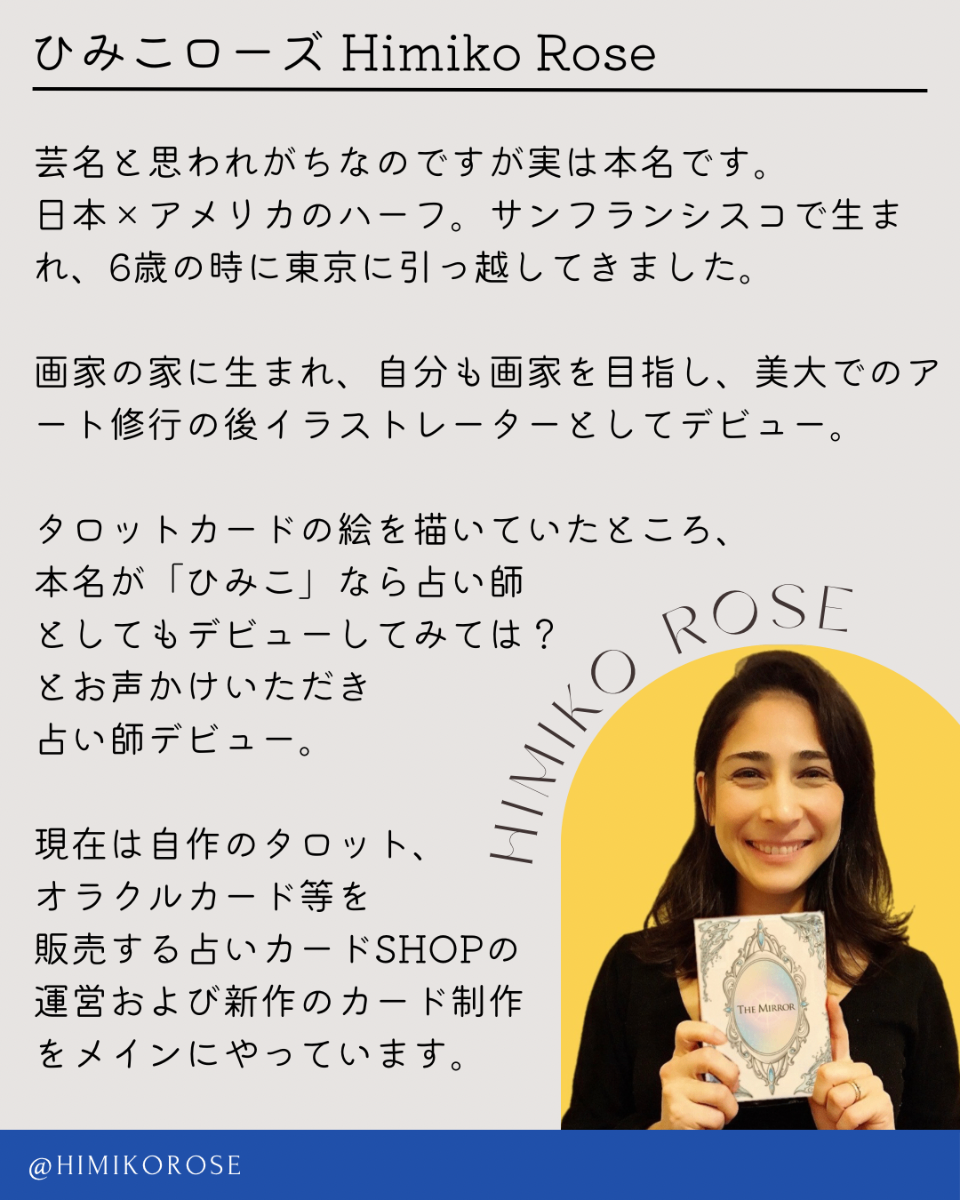 ひみこローズ Himiko Rose
芸名と思われがちなのですが実は本名です。
日本×アメリカのハーフ。サンフランシスコで生ま
れ、6歳の時に東京に引っ越してきました。
画家の家に生まれ、自分も画家を目指し、美大でのア
ート修行の後イラストレーターとしてデビュー。
タロットカードの絵を描いていたところ、
本名が「ひみこ」なら占い師
としてもデビューしてみては？
とお声かけいただき
占い師デビュー。
現在は自作のタロット、
オラクルカード等を
販売する占いカードSHOPの
運営および新作のカード制作
をメインにやっています。
HIMIKO ROSE
THE MIRROR
@HIMIKOROSE